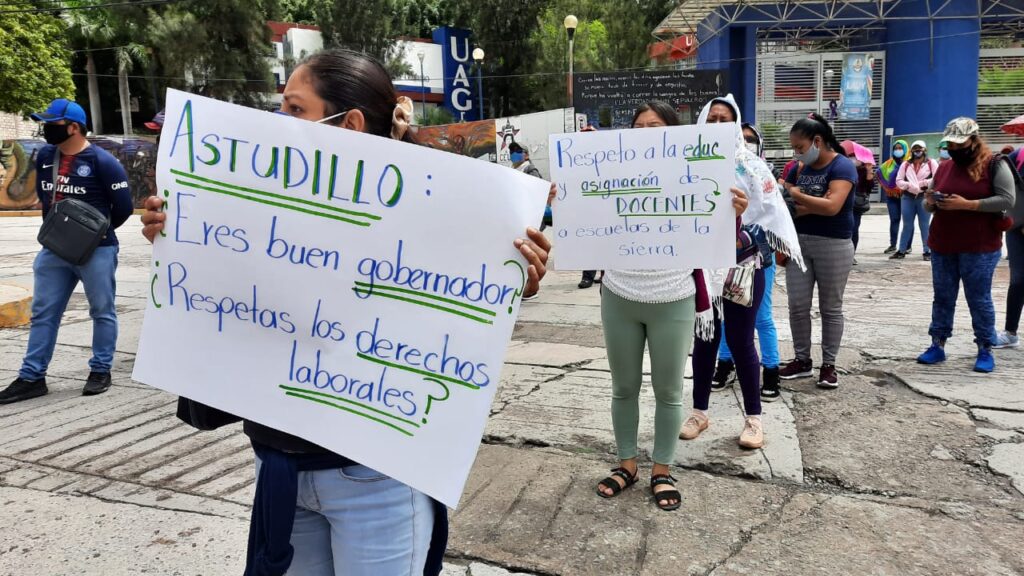 ASTUDILLO:
¿Eres buen gobernador?
¿Respetas los derechos
laborales?
Respeto a la educ
y asignación de
DOCENTES
a escuelas de la
sierra.
UAG
Fly
Emirates